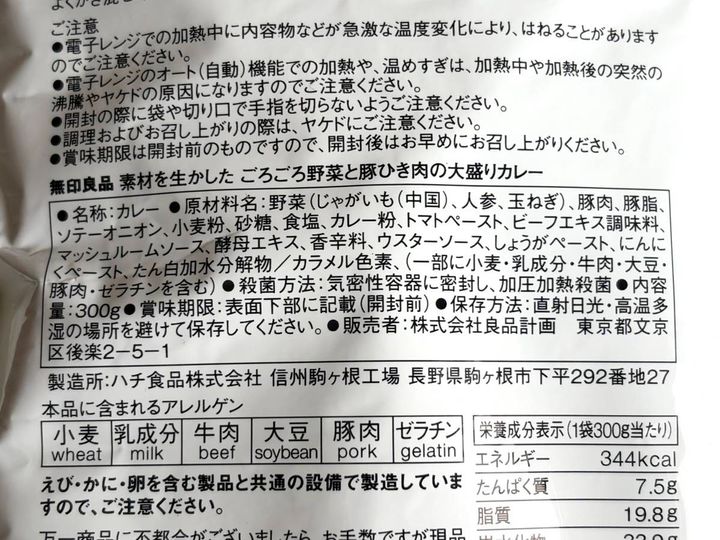 ご注意
●電子レンジでの加熱中に内容物などが急激な温度変化により、はねることがあります
のでご注意ください。
●電子レンジのオート(自動)機能での加熱や、温めすぎは、加熱中や加熱後の突然の
沸騰やヤケドの原因になりますのでご注意ください。
●開封の際に袋や切り口で手指を切らないようご注意ください。
●調理およびお召し上がりの際は、ヤケドにご注意ください。
●賞味期限は開封前のものですので、開封後はお早めにお召し上がりください。
無印良品 素材を生かした ごろごろ野菜と豚ひき肉の大盛りカレー
●名称:カレー ●原材料名:野菜(じゃがいも(中国)、人参、玉ねぎ)、豚肉、豚脂、
ソテーオニオン、小麦粉、砂糖、食塩、カレー粉、トマトペースト、ビーフエキス調味料、
マッシュルームソース、酵母エキス、香辛料、ウスターソース、しょうがペースト、にんに
くペースト、たん白加水分解物/カラメル色素、(一部に小麦・乳成分・牛肉・大豆・
豚肉・ゼラチンを含む) ●殺菌方法:気密性容器に密封し、加圧加熱殺菌 ●内容
量:300g ●賞味期限:表面下部に記載(開封前) ●保存方法:直射日光・高温多
湿の場所を避けて保存してください。 ●販売者:株式会社良品計画 東京都文京
区後楽2-5-1
製造所:ハチ食品株式会社 信州駒ヶ根工場 長野県駒ヶ根市下平292番地27
本品に含まれるアレルゲン
小麦 乳成分 牛肉 大豆 豚肉 ゼラチン
wheat milk beef soybean pork gelatin
えび・かに・卵を含む製品と共通の設備で製造していま
すので、ご注意ください。
万一商品に不都合がございましたら、お手数ですが現品
栄養成分表示(1袋300g当たり)
エネルギー 344kcal
たんぱく質 7.5g
脂質 19.8g